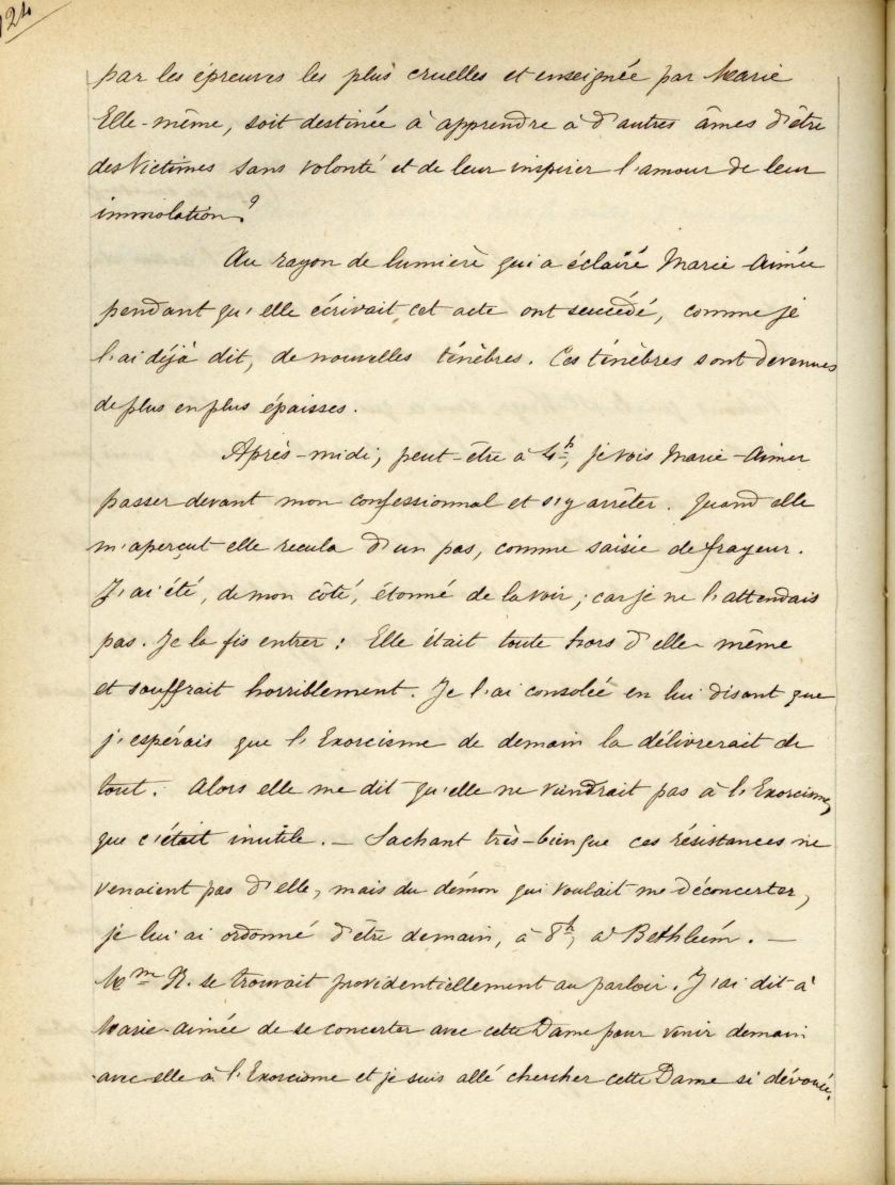 124
par les épreuves les plus cruelles et enseignée par Marie
Elle-même, soit destinée à apprendre à d'autres âmes d'être
des Victimes sans volonté et de leur inspirer l'amour de leur
immolation?
Au rayon de lumière qui a éclairé Marie-Aimée
pendant qu'elle écrivait cet acte ont succédé, comme je
l'ai déjà dit, de nouvelles ténèbres. Ces ténèbres sont devenues
de plus en plus épaisses.
Après-midi, peut-être à 4h, je vois Marie-Aimée
passer devant mon confessionnal et s'y arrêter. Quand elle
m'aperçut elle recula d'un pas, comme saisie de frayeur.
J'ai été, de mon côté, étonné de la voir; car je ne l'attendais
pas. Je la fis entrer: Elle était toute hors d'elle-même
et souffrait horriblement. Je l'ai consolée en lui disant que
j'espérais que l'Exorcisme de demain la délivrerait de
tout. Alors elle me dit qu'elle ne viendrait pas à l'Exorcisme,
que c'était inutile. — Sachant très-bien que ces résistances ne
venaient pas d'elle, mais du démon qui voulait me déconcerter,
je lui ai ordonné d'être demain, à 8h, à Bethléem. —
Mm R. se trouvait providentiellement au parloir. J'ai dit à
Marie-Aimée de se concerter avec cette Dame pour venir demain
avec elle à l'Exorcisme et je suis allé chercher cette Dame si dévouée.